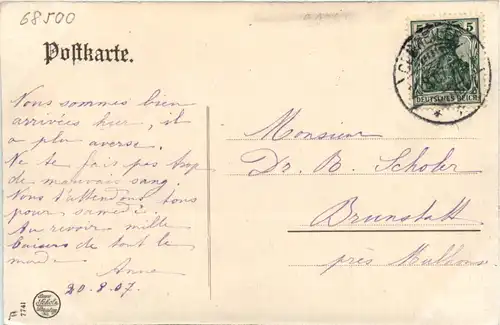 68500
Postkarte.
5 5
DEUTSCHES REICH
Nous sommes bien
arrivées hier, il
a plu averse.
Ne te fais pas trop
de mauvais sang.
Nous t'attendons tous
pour samedi.
Au revoir mille
baisers de tout le
monde
Anna
20.8.07.
Monsieur
Dr. B. Scholer
Brunstatt
près Mulhouse
7741